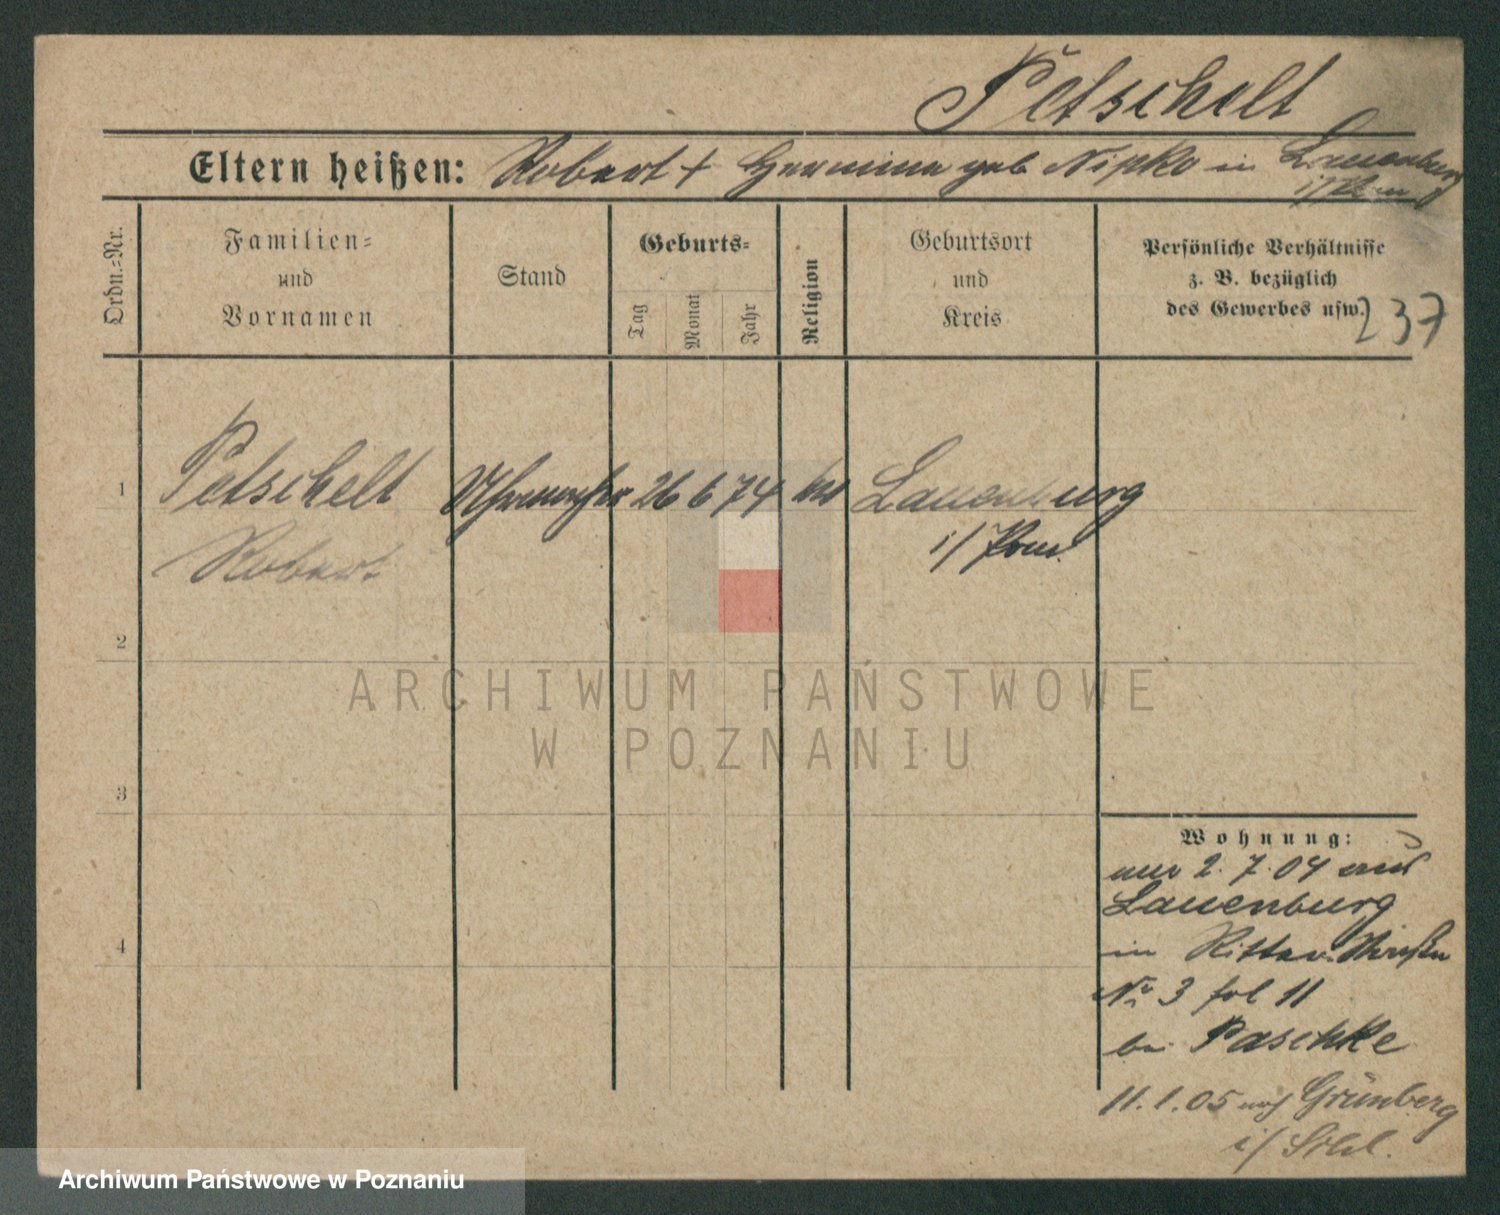 Petschelt
Eltern heißen: Robert + Hermine geb Nipko in Lauenburg
i/Pom
Ordn.-Nr.
Familien-
und
Vornamen
Stand
Geburts-
Tag
Monat
Jahr
Religion
Geburtsort
und
Kreis
Persönliche Verhältnisse
z. B. bezüglich
des Gewerbes usw.
237
1 Petschelt Uhrmacher 26 6 74 Lauenburg
Robert i/Pom.
2
3
4
ARCHIWUM PAŃSTWOWE
W POZNANIU
Wohnung:
2.7.04 aus
Lauenburg
in Ritter Straße
No 3 fol 11
bei Paschke
11.1.05 nach Grünberg
i/Schl.
Archiwum Państwowe w Poznaniu